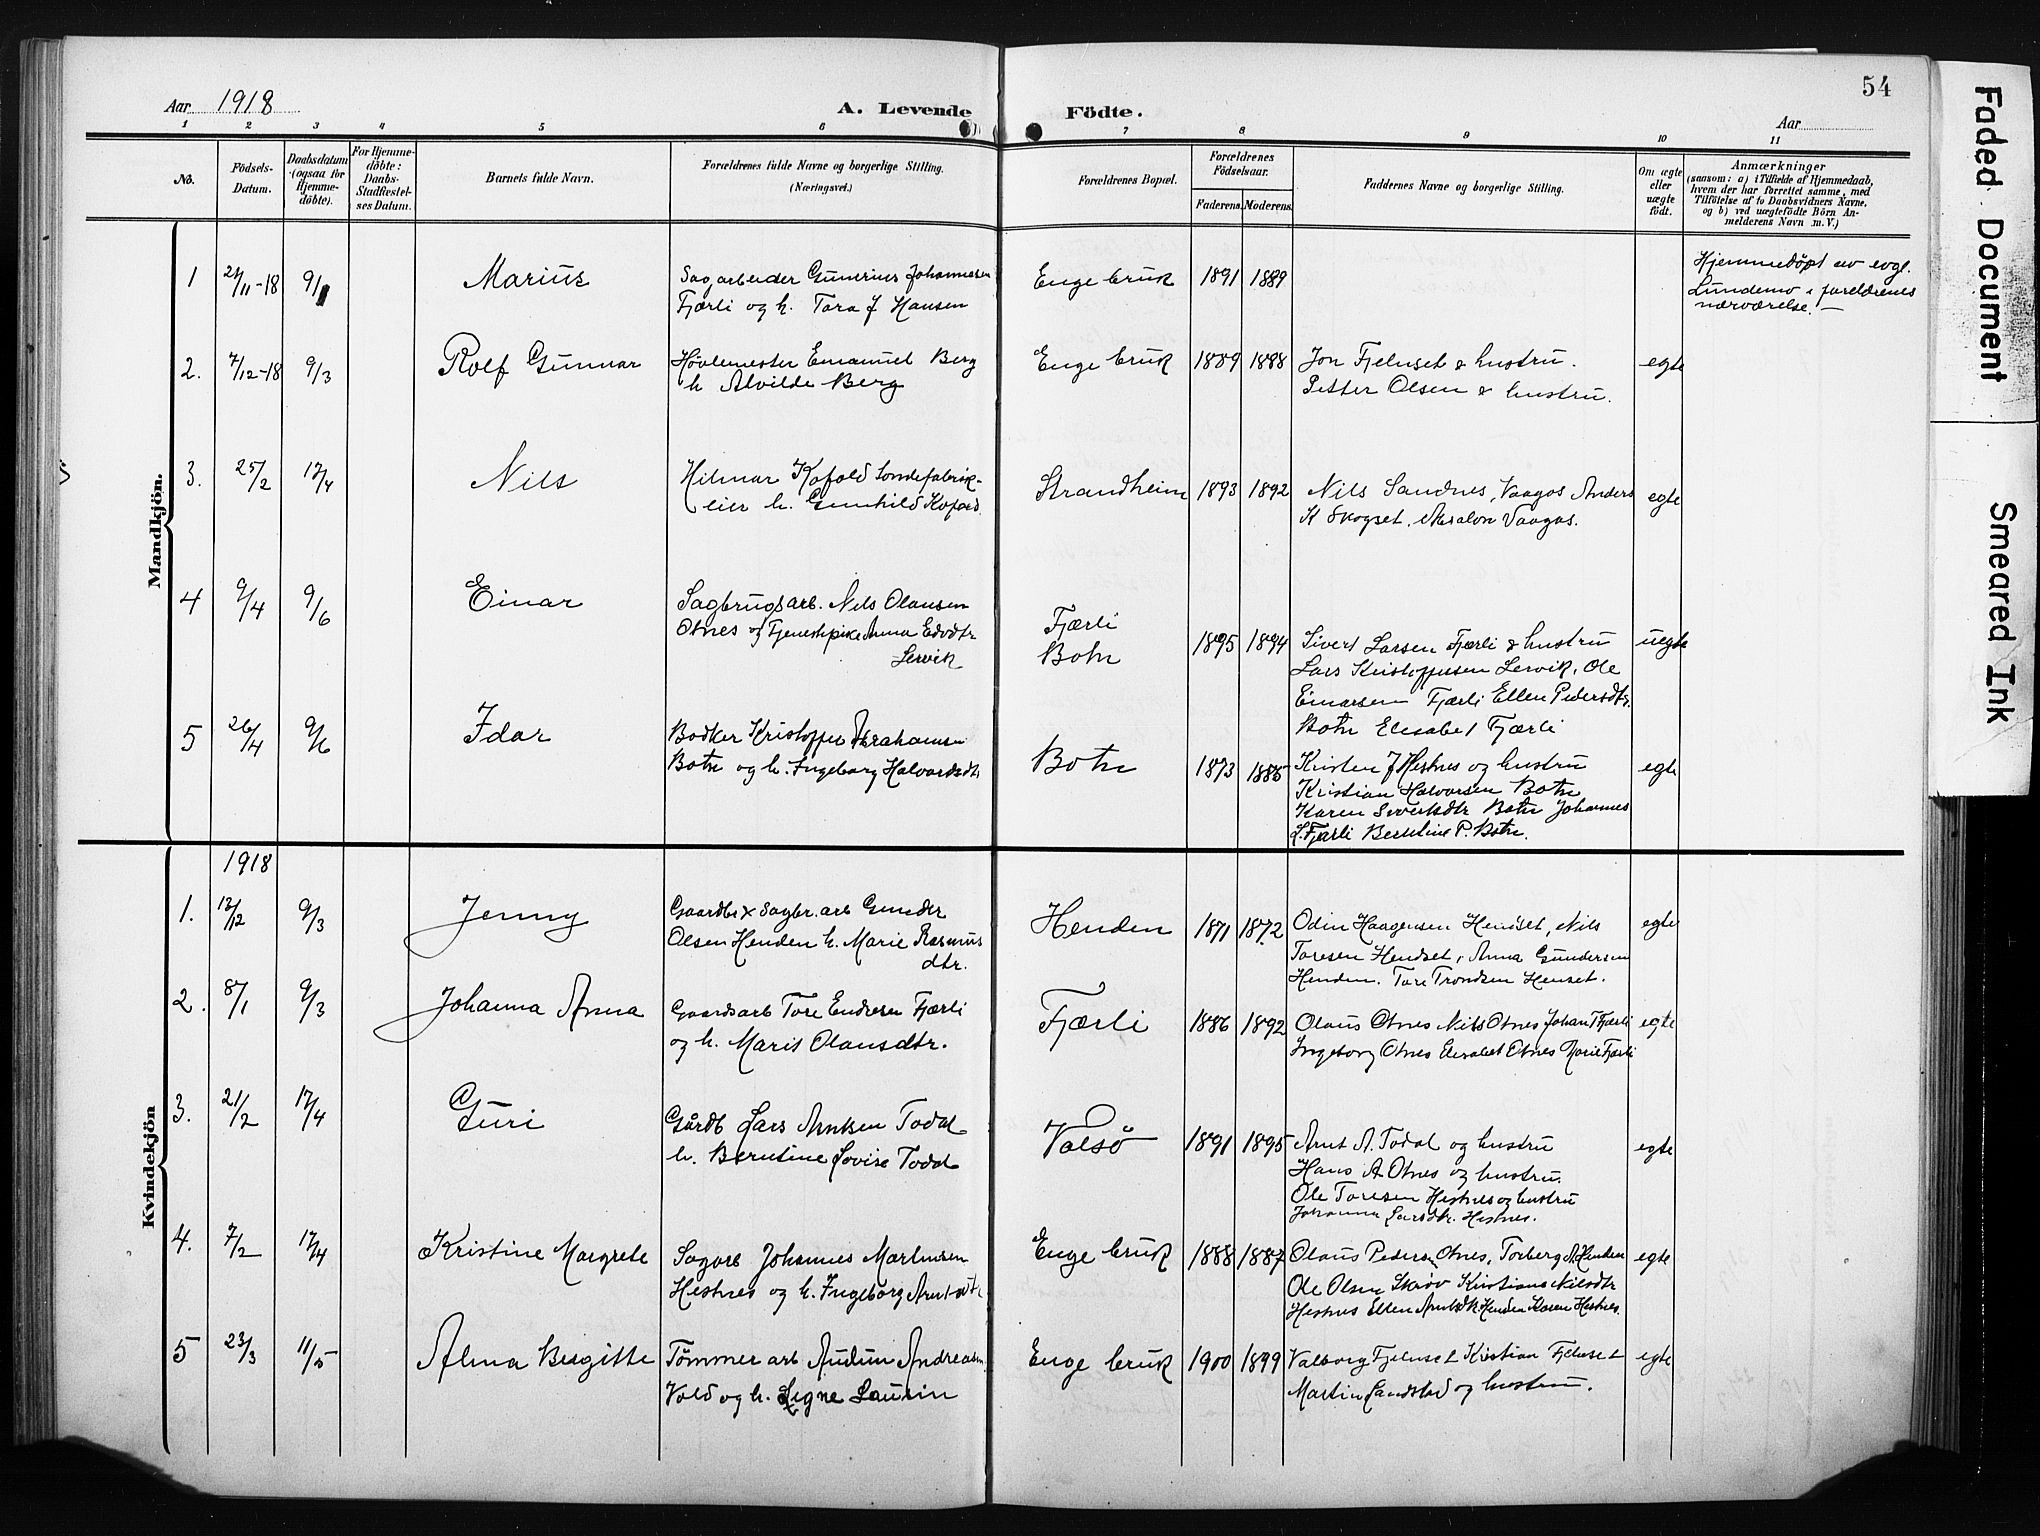 54
Aar 1918
A. Levende Födte.
Aar
1 2 3 4 5 6 7 8 9 10 11
No.
Födsels-Datum.
Daabsdatum (ogsaa for Hjemme-döbte).
For Hjemme-döbte: Daabs-Stadfæstel-ses Datum.
Barnets fulde Navn.
Forældrenes fulde Navne og borgerlige Stilling.
(Næringsvei.)
Forældrenes Bopæl.
Forældrenes Födselsaar.
Faderens. Moderens.
Faddernes Navne og borgerlige Stilling.
Om ægte eller uægte födt.
Anmærkninger
(saasom: a) i Tilfælde af Hjemmedaab,
hvem der har forrettet samme, med
Tilföielse af to Daabsvidners Navne,
og b) ved uægtefödte Börn An-
melderens Navn m. V.)
Mandkjön.
1 24/11-18 9/1 Marius
Sagarbeider Gunerius Johannesen
Fjærli og h. Tora J Hansen
Enge bruk 1891 1889
Hjemmedöpt av evgl.
Lundemo i foreldrenes
nærværelse. —
2. 7/12-18 9/3 Rolf Gunnar
Hövlemester Emanuel Berg
h Alvilde Berg
Enge bruk 1889 1888
Jon Fjelnset & hustru.
Petter Olsen & hustru.
egte
3. 25/2 17/4 Nils
Hilmar Kofold Tøndefabrik-
eier h. Gunhild Kofoed
Strandheim 1893 1892
Nils Sandnes, Vaagos Anders
K Skogset, Absalon Vaagos.
egte
4 9/4 9/6 Einar
Sagbrugsarb. Nils Olausen
Otnes og Tjenestepike Anna Edvdtr
Lervik
Fjærli
Botn
1895 1894
Sivert Larsen Fjærli & hustru
Lars Kristoffersen Lervik, Ole
Einarsen Fjærli Ellen Pedersdtr.
Botn Elisabet Fjærli
uegte
5 26/4 9/6 Idar
Bødker Kristoffer Abrahamsen
Botn og h. Ingeborg Halvardsdtr
Botn 1873 1885
Kristen J Hestnes og hustru
Kristian Halvorsen Botn
Karen Sivertsdtr Botn Johannes
L. Fjærli Berntine P. Botn.
egte
Kvindekjön
1918
1. 13/12 9/3 Jenny
Gaardbr & Sagbr. arb Gunder
Olsen Henden h. Marie Rasmus
dtr.
Henden 1871 1872
Odin Haagensen Hendset, Nils
Toresen Hendset, Anna Gundersen
Henden. Tore Trondsen Henset.
egte
2. 8/1 9/3 Johanna Anna
Gaardsarb Tore Endresen Fjærli
og h. Marit Olausdtr.
Fjærli 1886 1892
Olaus Otnes Nils Otnes Johan T Fjærli
Ingeborg Otnes Elisabet Otnes Marie Fjærli
egte
3. 21/2 17/4 Guri
Gårdb Lars Arntsen Todal
h. Berntine Lovise Todal
Valsö 1891 1895
Arnt A. Todal og hustru
Hans A Otnes og hustru.
Ole Toresen Hestnes og hustru
Johanna Larsdtr. Hestnes.
egte
4. 7/2 17/4 Kristine Margrete
Sagarb Johannes Martinsen
Hestnes og h. Ingeborg Arntsdtr
Enge bruk 1888 1887
Olaus Pedersen Otnes, Torberg A Henden
Ole Olsen Skröv Kristiane Nilsdtr
Hestnes Ellen Arntsdtr Henden Karen Hestnes.
egte
5 23/3 11/5 Alma Birgitte
Tömmer arb Audun Andreassen
Vold og h. Signe Laurin
Enge bruk 1900 1899
Valborg Fjelnset Kristian Fjelnset
Martin Sandstad og hustru.
egte
Faded Document
Smeared Ink